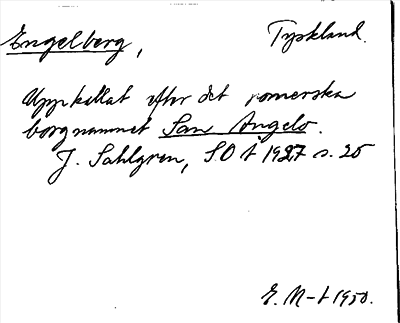 Engelberg, Tyskland.
Uppkallat efter det romerska
borgnamnet San Angelo.
J. Sahlgren, SOÅ 1927 s. 25
E. M-t 1950.